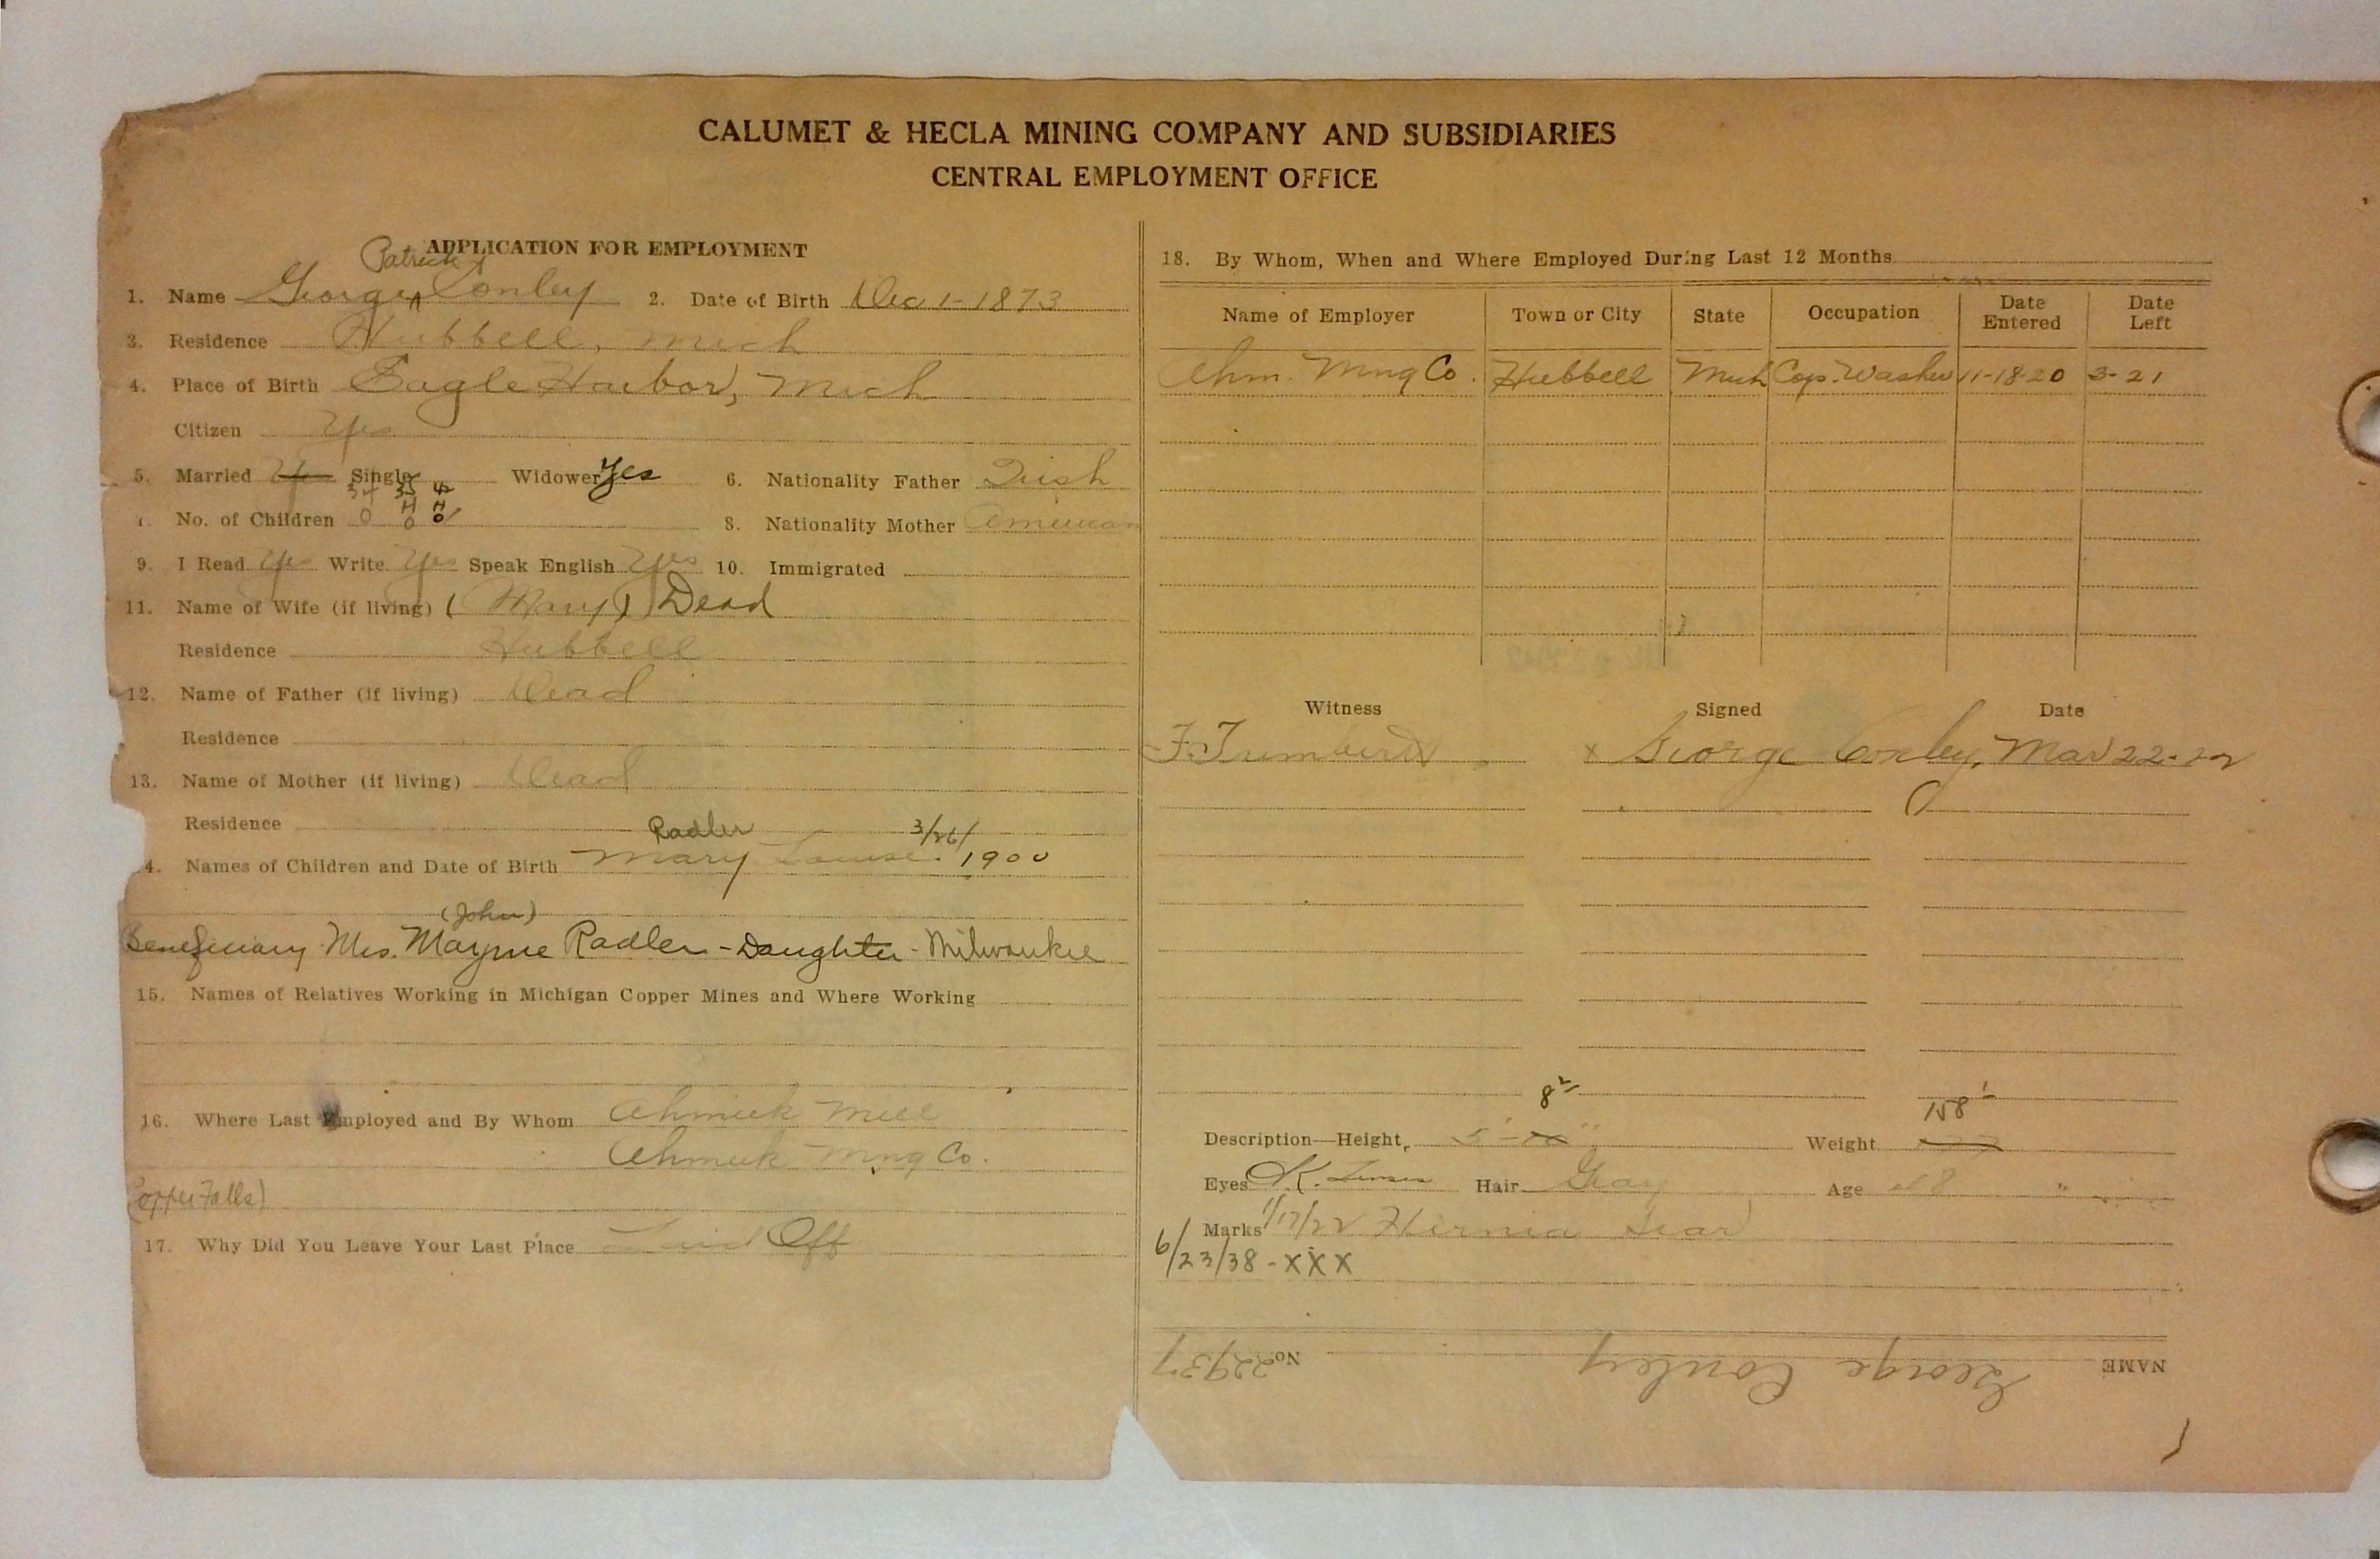 CALUMET & HECLA MINING COMPANY AND SUBSIDIARIES
CENTRAL EMPLOYMENT OFFICE
APPLICATION FOR EMPLOYMENT
Patrick
1. Name George Conley 2. Date of Birth Dec 1-1873
3. Residence Hubbell, Mich
4. Place of Birth Eagle Harbor, Mich
Citizen Yes
5. Married Yes Single Widower Yes 6. Nationality Father Irish
34 35 42
H H
7. No. of Children 0 0 0 8. Nationality Mother American
9. I Read Yes Write Yes Speak English Yes 10. Immigrated
11. Name of Wife (if living) (Mary) Dead
Residence Hubbell
12. Name of Father (if living) Dead
Residence
13. Name of Mother (if living) Dead
Residence
Radler 3/26/
14. Names of Children and Date of Birth Mary Louise. 1900
(John)
Beneficiary Mrs. Mayme Radler - Daughter - Milwaukee
15. Names of Relatives Working in Michigan Copper Mines and Where Working
16. Where Last Employed and By Whom Ahmeek Mill
Ahmeek Mng Co.
(Copper Falls)
17. Why Did You Leave Your Last Place Laid Off
18. By Whom, When and Where Employed During Last 12 Months
Name of Employer Town or City State Occupation Date Entered Date Left
Ahm. Mng Co. Hubbell Mich Cop. Washer 11-18-20 3-21
Witness Signed Date
x George Conley, Mar 22-22
8½ 158½
Description—Height, 5' Weight
Eyes Hair Gray Age 48
Marks 1/17/22 Hernia Scar
6/23/38 - XXX
NAME George Conley No. 22937